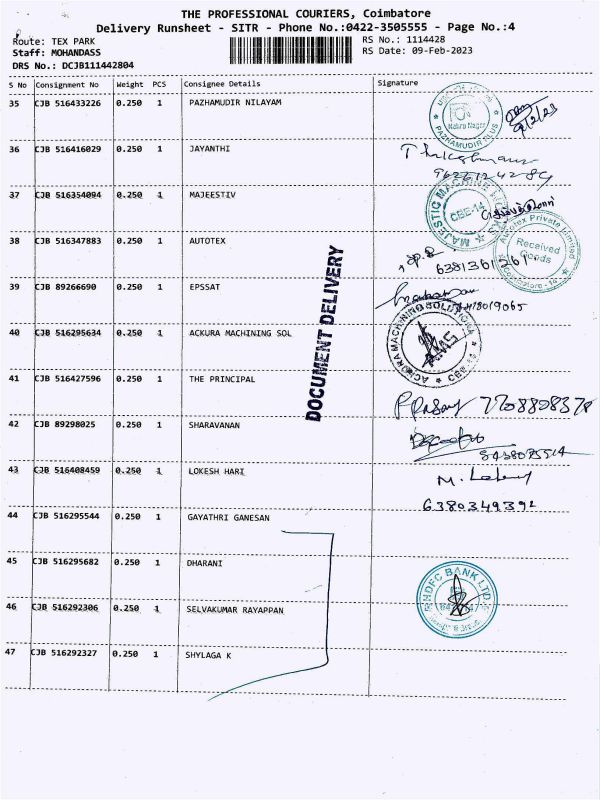 THE PROFESSIONAL COURIERS, Coimbatore
Delivery Runsheet - SITR - Phone No.:0422-3505555 - Page No.:4
Route: TEX PARK
RS No.: 1114428
Staff: MOHANDASS
RS Date: 09-Feb-2023
DRS No.: DCJB111442804
S No Consignment No Weight PCS Consignee Details Signature
35 CJB 516433226 0.250 1 PAZHAMUDIR NILAYAM
PAZHAMUDIR PLUS
9/2/23
36 CJB 516416029 0.250 1 JAYANTHI
37 CJB 516354094 0.250 1 MAJEESTIV
MAJESTIC MACHINE
CBE-14
38 CJB 516347883 0.250 1 AUTOTEX
Autotex Private Limited
Received
Goods
Coimbatore - 14
39 CJB 89266690 0.250 1 EPSSAT
DOCUMENT DELIVERY
40 CJB 516295634 0.250 1 ACKURA MACHINING SOL
ACKURA MACHINING SOLUTION
AMS
CBE-14
41 CJB 516427596 0.250 1 THE PRINCIPAL
42 CJB 89298025 0.250 1 SHARAVANAN
43 CJB 516408459 0.250 1 LOKESH HARI
6380349392
44 CJB 516295544 0.250 1 GAYATHRI GANESAN
45 CJB 516295682 0.250 1 DHARANI
HDFC BANK LTD
46 CJB 516292306 0.250 1 SELVAKUMAR RAYAPPAN
47 CJB 516292327 0.250 1 SHYLAGA K